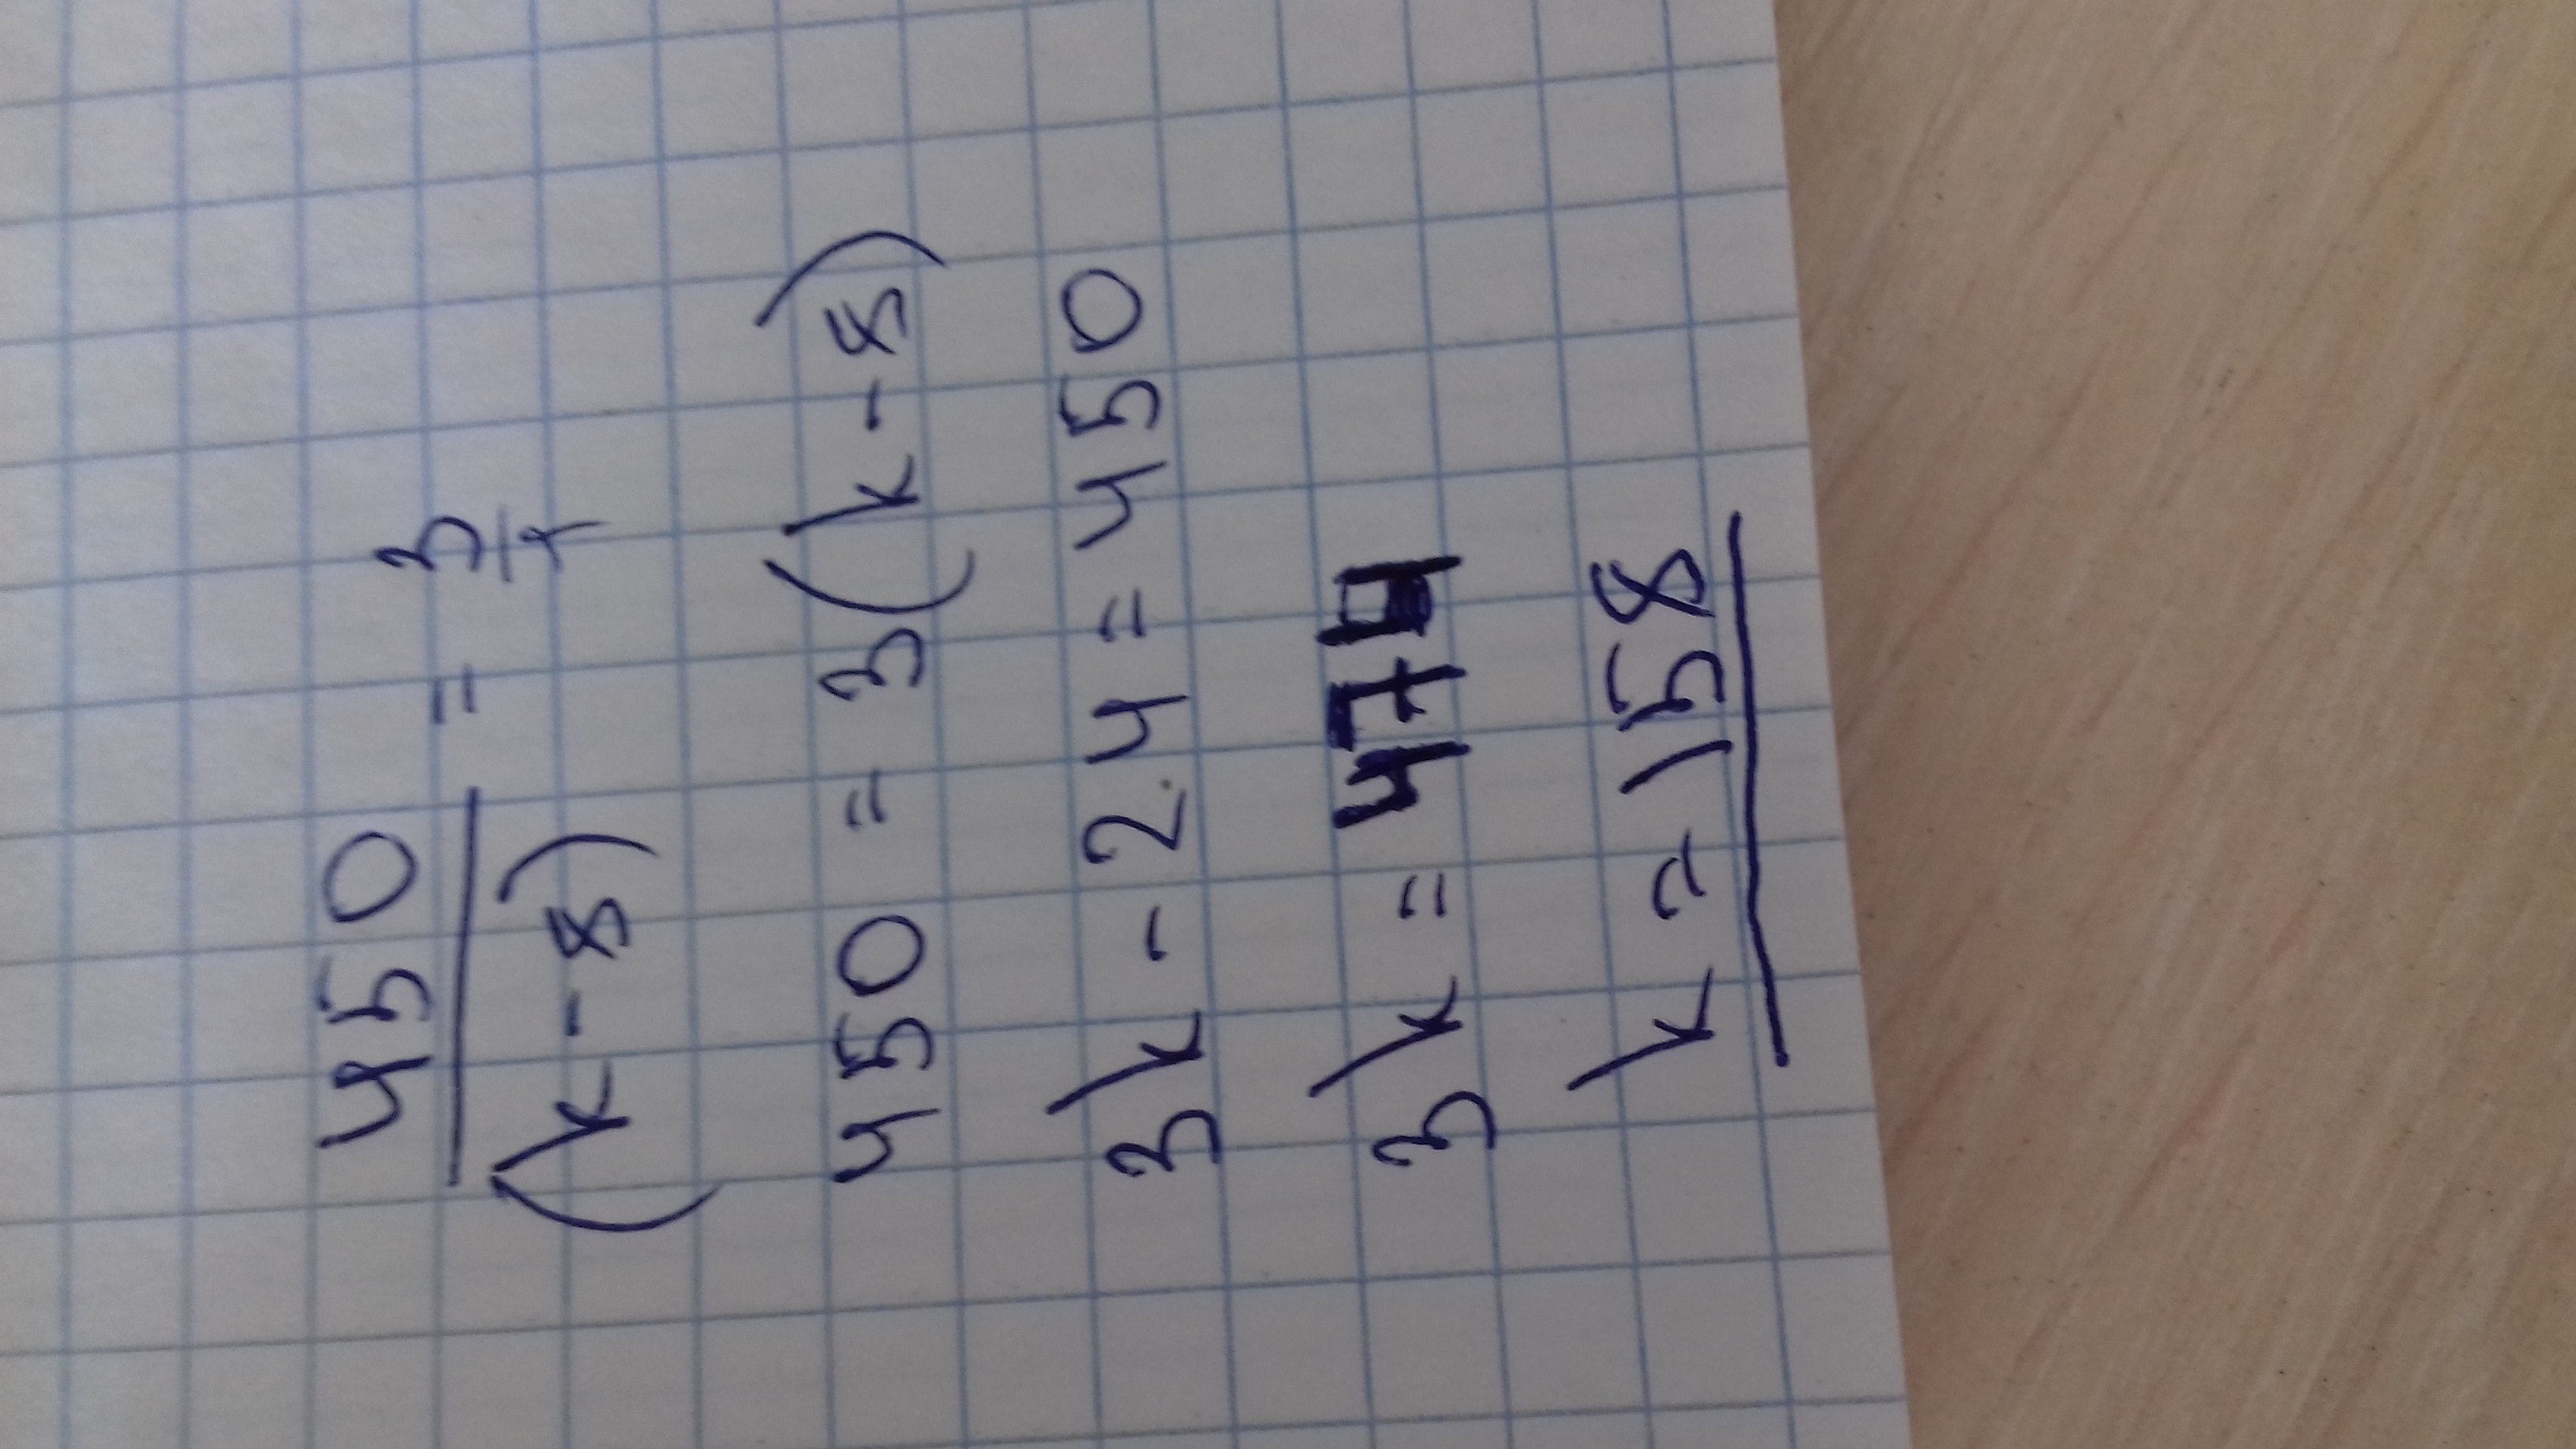 450/(k-8) = 3/1
450 = 3(k-8)
3k - 24 = 450
3k = 474
k = 158